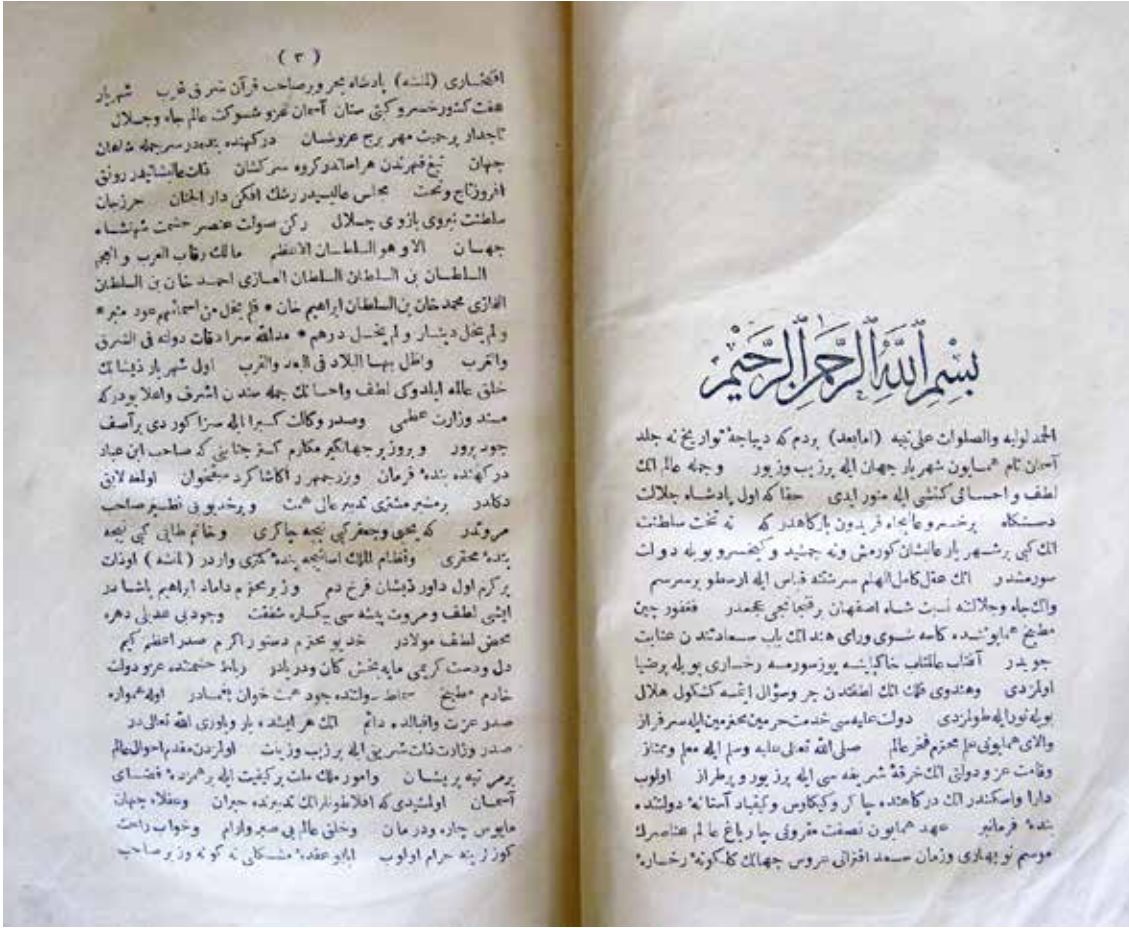 بسم الله الرحمن الرحيم
الحمد لوليه والصلوات على نبيه (امابعد) بردم كه ديباجۀ تواريخ نه جلد
آسمان نام همايون شهريار جهان ايله پرزيب وزيور وجمله عالم انك
لطف واحسانى كنشى ايله منور ايدى حقا كه اول پادشاه جلالت
دستكاه پرخسرو عاليجاه فريدون باركاهدر كه نه تخت سلطنت
انك كبى برشهريار عاليشان كورمش ونه جمشيد وكيخسرو بويله دولت
سورمشدر انك عقل كامل الهام سرشتنه قياس ايله ارسطو برسرسم
وانك جاه وجلالنه نسبت شاه اصفهان عجمدر فغفور چين
مطبخ همايوننده كاسه شوى وراى هند انك باب سعادتندن عنايت
جويدر آفتاب عالمتاب خاكپاينه يوزسورمسه رخسارى بويله پرضيا
اولمزدى وهندوى فلك انك لطفندن جر وسؤال ايتمسه كشكول هلال
بويله نورايله طولمزدى دولت عليه سى خدمت حرمين محترمين ايله سرفراز
ولواى همايونى علم محترم فخر عالم صلى الله تعالى عليه وسلم ايله معلم وممتاز
وقامت عز ودولتى انك خرقۀ شريفه سى ايله پرزيور وپرطراز اولوب
دارا واسكندر انك دركاهنده چاكر وكيكاوس وكيقباد آستانۀ دولتنده
بندۀ فرمانبر عهد همايون نصفت مقرونى چارباغ عالم عناصرك
موسم نوبهارى وزمان سعد افزانى عروس جهانك كلكونۀ رخسارۀ
(٣)
افتخارى (لمنشه) پادشاه بحر وبر صاحب قرآن شرق وغرب شهريار
هفت كشور خسرو كيتى ستان آسمان عز وشوكت عالم جاه وجلال
تاجدار پرحميت مهر برج عز وشان دركهنده بنده در سرجمله شاهان
جهان تيغ قهرندن هراساندر كروه سركشان ذات عاليشانيدر رونق
افروز تاج وتخت مجلس عاليسيدر رشك افكن دار الجنان حرزجان
سلطنت نيروى بازوى جلال ركن صولت عنصر حشمت شهنشاه
جهان الا وهو السلطان الاعظم مالك رقاب العرب والعجم
السلطان بن السلطان السلطان الغازى احمد خان بن السلطان
الغازى محمد خان بن السلطان ابراهيم خان * فلم يخل من اسمائهم عود منبر *
ولم يخل دينار ولم يخل درهم * مد الله سرادقات دولته فى الشرق
والغرب واظل بها البلاد فى البعد والقرب اول شهريار ذيشانك
خلق عالمه ايلدوكى لطف واحسانك جمله سندن اشرف واعلا بودركه
مسند وزارت عظمى وصدر وكالت كبرايله سزا كوردى برآصف
جود پرور وبروزير جهانكير مكارم كستر جنابنى كه صاحب ابن عباد
دركهنده بندۀ فرمان وبزرجمهر اكا شاكرد سبقخوان اولمغه لايق
دكلدر برمشير مشترى تدبير عالى همت وبرخديو بى نظير صاحب
مروتدر كه يحيى وجعفر كبى نيجه چاكرى وحاتم طائى كبى نيجه
بندۀ محقرى ونظام الملك اسا نيجه بندۀ كمترى واردر (لمنشه) اوذات
پركرم اول داور ذيشان فرخ دم وزير محترم داماد ابراهيم پاشادر
ايشى لطف ومروت پيشه سى يكباره شفقت وجود بى عديلى دهره
محض لطف مولادر خديو محترم دستور اكرم صدر اعظم كيم
دل ودست كريمى مايه بخش كان ودريادر رباط حشمتنده عز ودولت
خادم مطبخ سماط دولتنده جود همت خوان يغمادر اوله همواره
صدر عزت واقبالده دائم انك هر ايشده يار وياورى الله تعالى در
صدر وزارت ذات شريفى ايله پرزيب وزينت اولمزدن مقدم احوال عالم
برمرتبه پريشان وامور ملك ملت بركيفيت ايله برهمزدۀ فضاى
آسمان اولمشيدى كه افلاطونلر انك تدبيرنده حيران وعقلاء جهان
مأيوس چاره ودرمان وخلق عالم بى صبر وارام وخواب راحت
كوزلرينه حرام اولوب ايا بو عقدۀ مشكلى نه كونه وزير صاحب